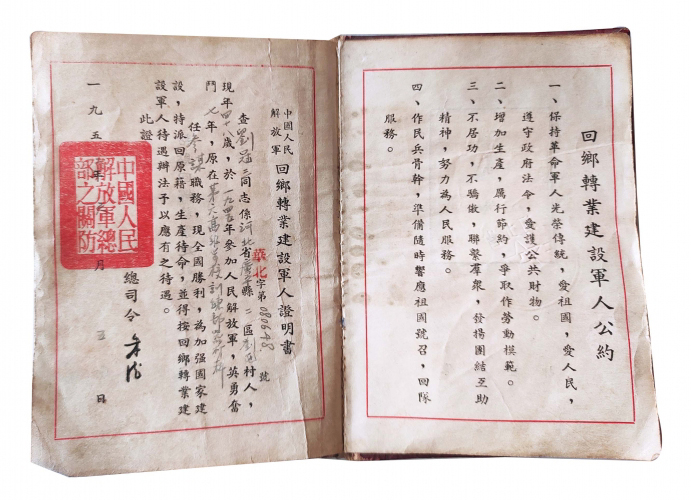 回鄉轉業建設軍人公約
一、保持革命軍人光榮傳統，愛祖國，愛人民，
遵守政府法令，愛護公共財物。
二、增加生產，厲行節約，爭取作勞動模範。
三、不居功，不驕傲，聯繫羣衆，發揚團結互助
精神，努力為人民服務。
四、作民兵骨幹，準備隨時響應祖國號召，回隊
服務。
中國人民
解放軍
回鄉轉業建設軍人證明書
華北字第080648號
查劉 三同志係河北省 縣二區劉 村人，
現年四十八歲，於一九四五年參加人民解放軍，英勇奮
鬥七年，原在第六高級步校訓練部
任參謀職務，現全國勝利，為加强國家建
設，特派回原籍，生產待命，並得按回鄉轉業建
設軍人待遇辦法予以應有之待遇。
此證
總司令 朱德
一九五 年 月 五日
中國人民
解放軍總
部之關防